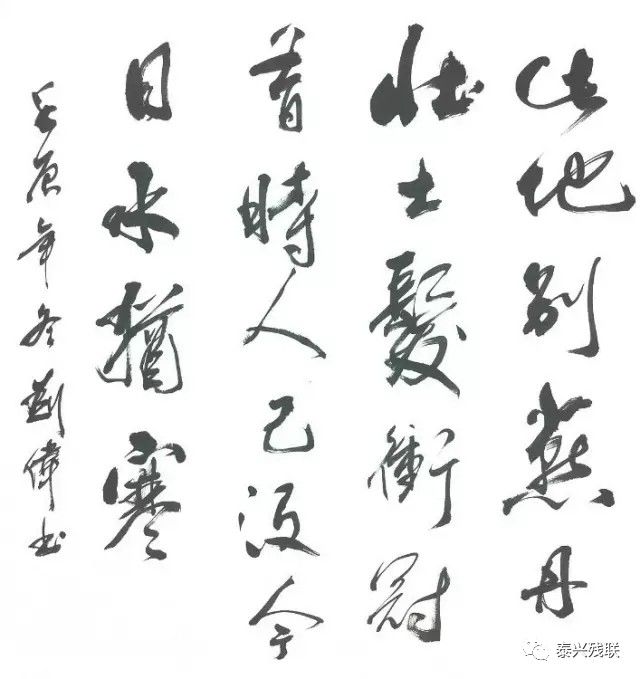 此地别燕丹
壮士髮衝冠
昔時人已没今
日水猶寒
壬辰年冬劉偉书
泰兴残联